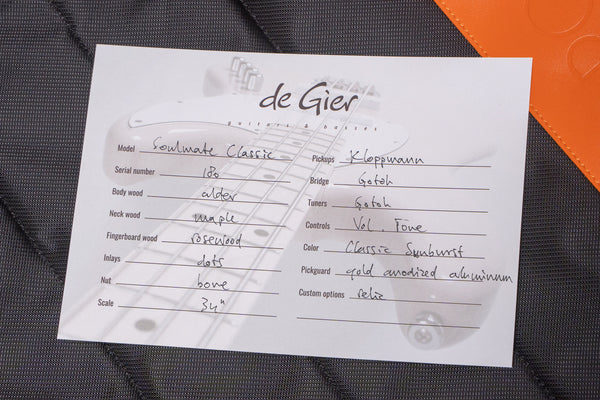 de Gier
guitars & basses
Model Soulmate Classic
Serial number 180
Body wood alder
Neck wood maple
Fingerboard wood rosewood
Inlays dots
Nut bone
Scale 34"
Pickups Kloppmann
Bridge Gotoh
Tuners Gotoh
Controls Vol. Tone
Color Classic Sunburst
Pickguard gold anodized aluminum
Custom options relic